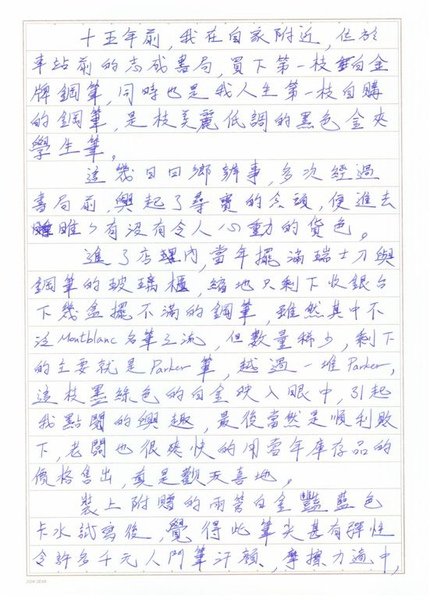 十五年前，我在自家附近，位於
車站前的志成書局，買下第一枝白金
牌鋼筆，同時也是我人生第一枝自購
的鋼筆，是枝美麗低調的黑色金夾
學生筆。
這幾日回鄉辦事，多次經過
書局前，興起了尋寶的念頭，便進去
瞧瞧有沒有令人心動的貨色。
進了店裡內，當年擺滿瑞士刀與
鋼筆的玻璃櫃，縮地只剩下收銀台
下幾盒擺不滿的鋼筆，雖然其中不
泛Montblanc名筆之流，但數量稀少，剩下
的主要就是Parker筆，越過一堆Parker，
這枝墨綠色的白金映入眼中，引起
我點閱的興趣，最後當然是順利敗
下，老闆也很爽快的用當年庫存品的
價格售出，真是歡天喜地。
裝上附贈的兩管白金豔藍色
卡水試寫後，覺得此筆尖甚有彈性
令許多千元入門筆汗顏，摩擦力適中，